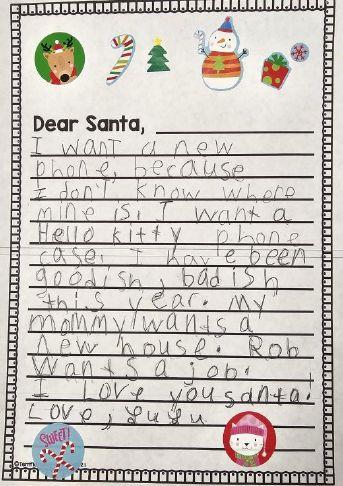 Dear Santa,
I want a new
phone, because
I don't know where
mine is. I want a
Hello kitty phone
case. I have been
goodish, badish
this year. My
mommy wants a
new house. Rob
wants a job.
I Love you santa!
Love, Lulu
SWEET!